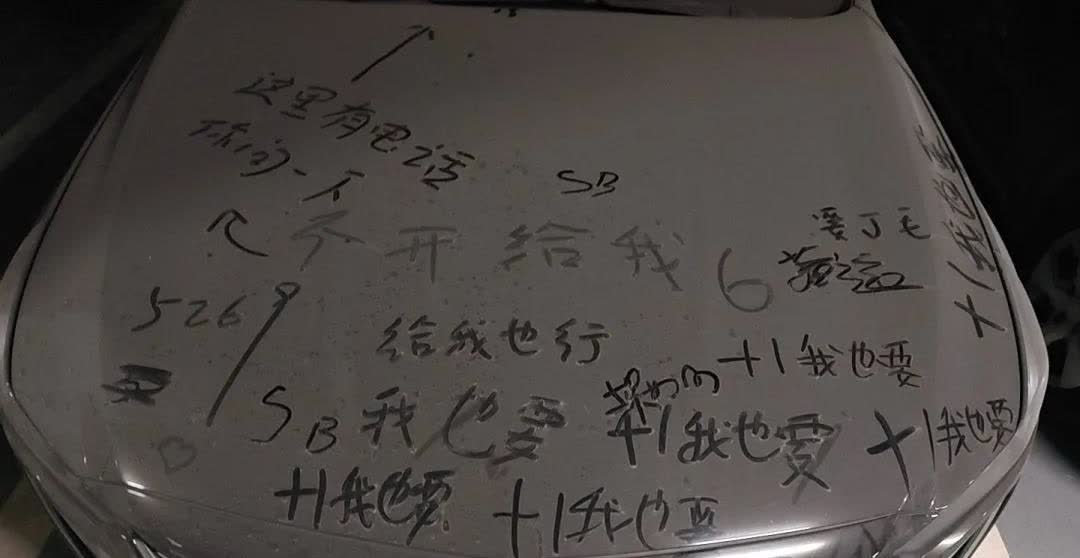 这里有电话
你问一下
SB
不开给我
6
要丁毛
526
给我也行
+1我也要
SB
我也要
+1我也要
+1我也要
+1我也要
+1我也要
+1我也要